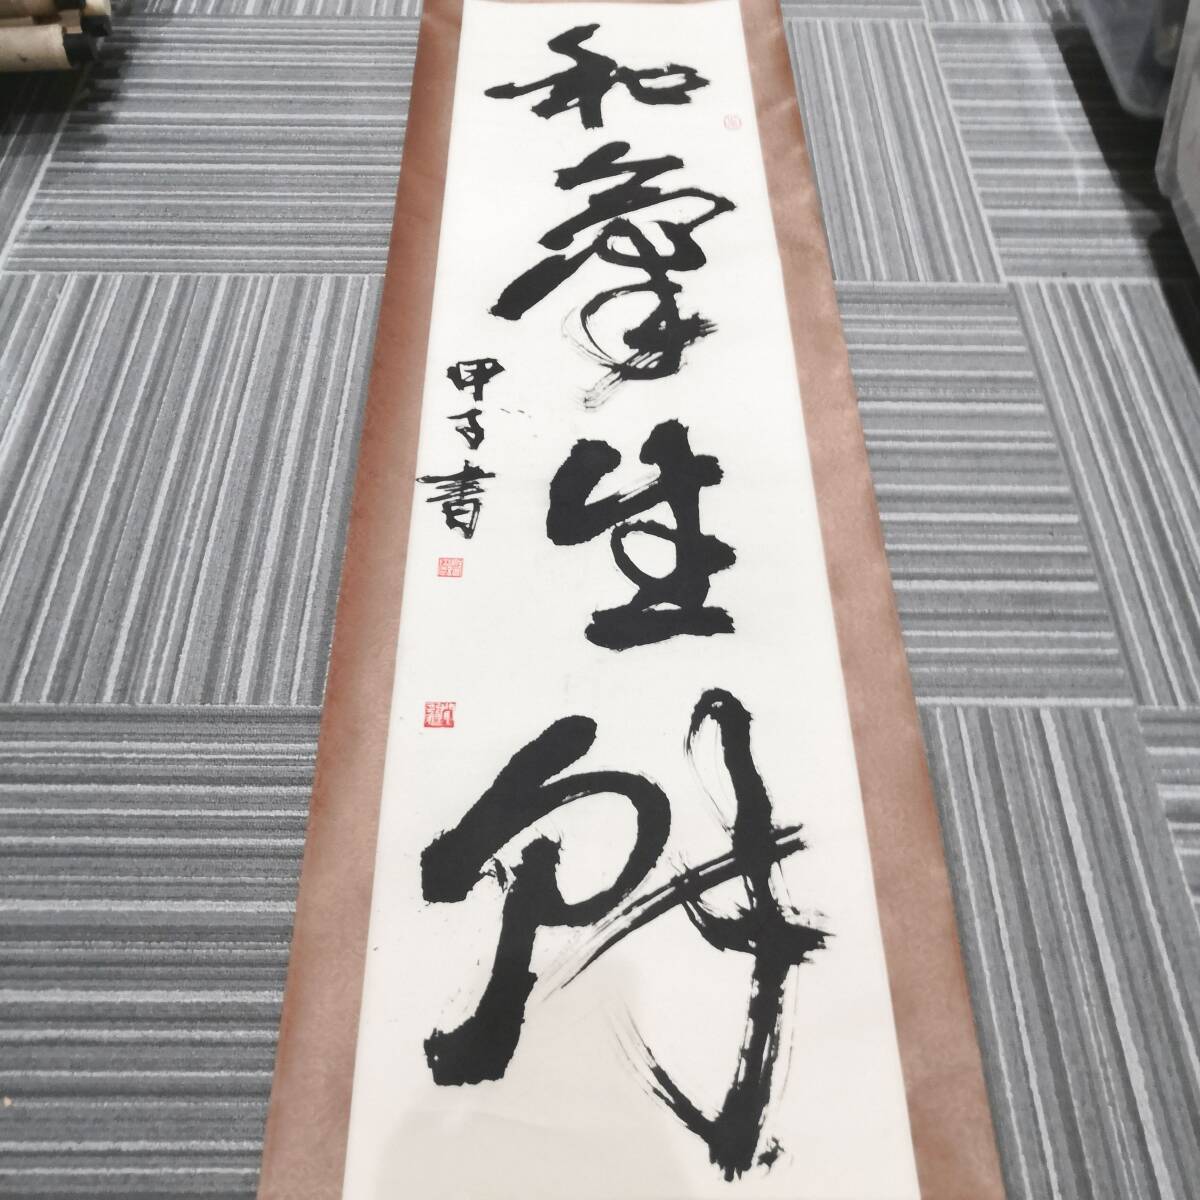 和氣生財
甲子書